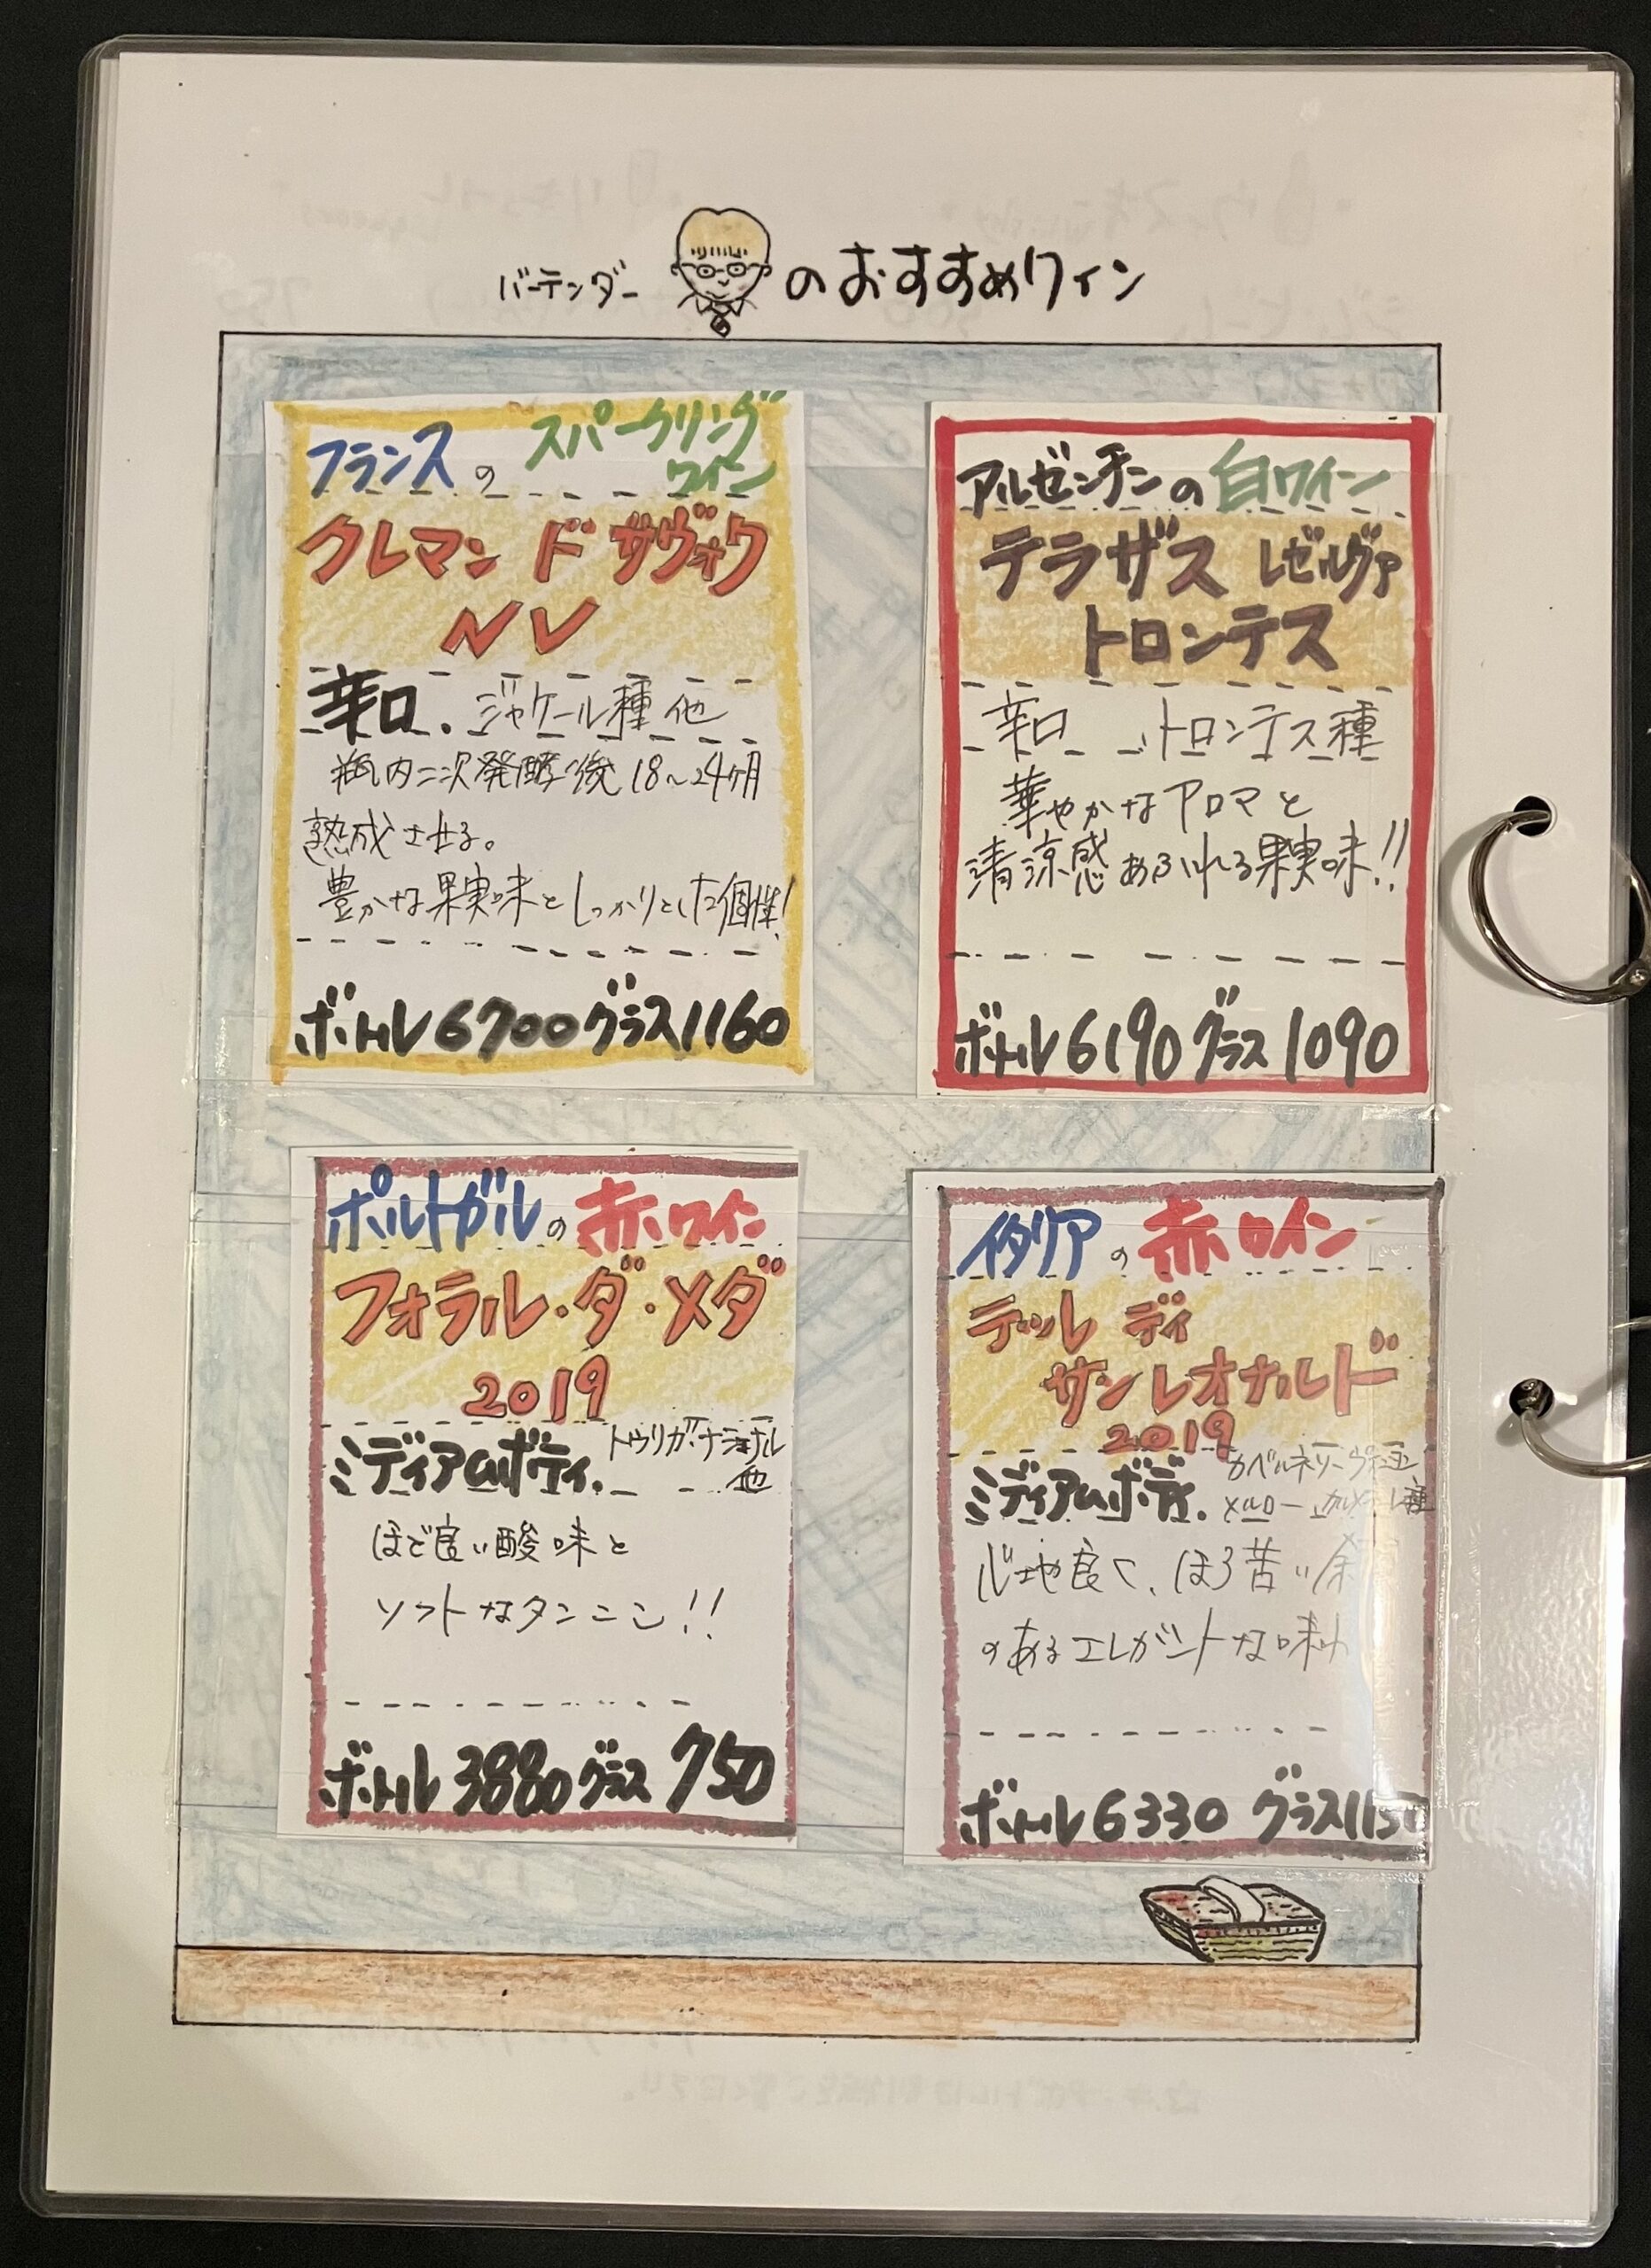 バーテンダー のおすすめワイン
フランスの スパークリング
ワイン
クレマン ド サヴォワ
NV
辛口. ジャケール種 他
瓶内二次発酵後18~24ヶ月
熟成させる。
豊かな果実味としっかりとした個性!
ボトル6700グラス1160
アルゼンチンの白ワイン
テラザス レゼルヴァ
トロンテス
辛口 、トロンテス種
華やかなアロマと
清涼感あふれる果実味!!
ボトル6190グラス1090
ポルトガルの赤ワイン
フォラル・ダ・メダ
2019
ミディアムボディ. トウリガ・ナショナル
他
ほど良い酸味と
ソフトなタンニン!!
ボトル3880グラス750
イタリアの赤ワイン
テッレ ディ
サン レオナルド
2019
ミディアムボディ. カベルネソーヴィニヨン
メルロー、カルメネーレ種
心地良く、ほろ苦い余
のあるエレガントな味わ
ボトル6330 グラス1150